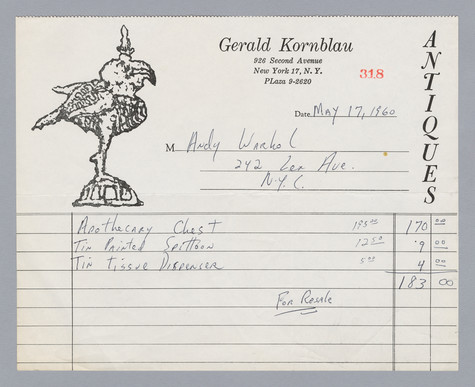 Gerald Kornblau
926 Second Avenue
New York 17, N.Y.
PLaza 9-2620
318
ANTIQUES
Date May 17, 1960
M Andy Warhol
242 Lex Ave.
N.Y.C.
Apothecary Chest 195.00 170 00
Tin Painted Spittoon 12.50 9 00
Tin Tissue Dispenser 5.00 4 00
183 00
For Resale